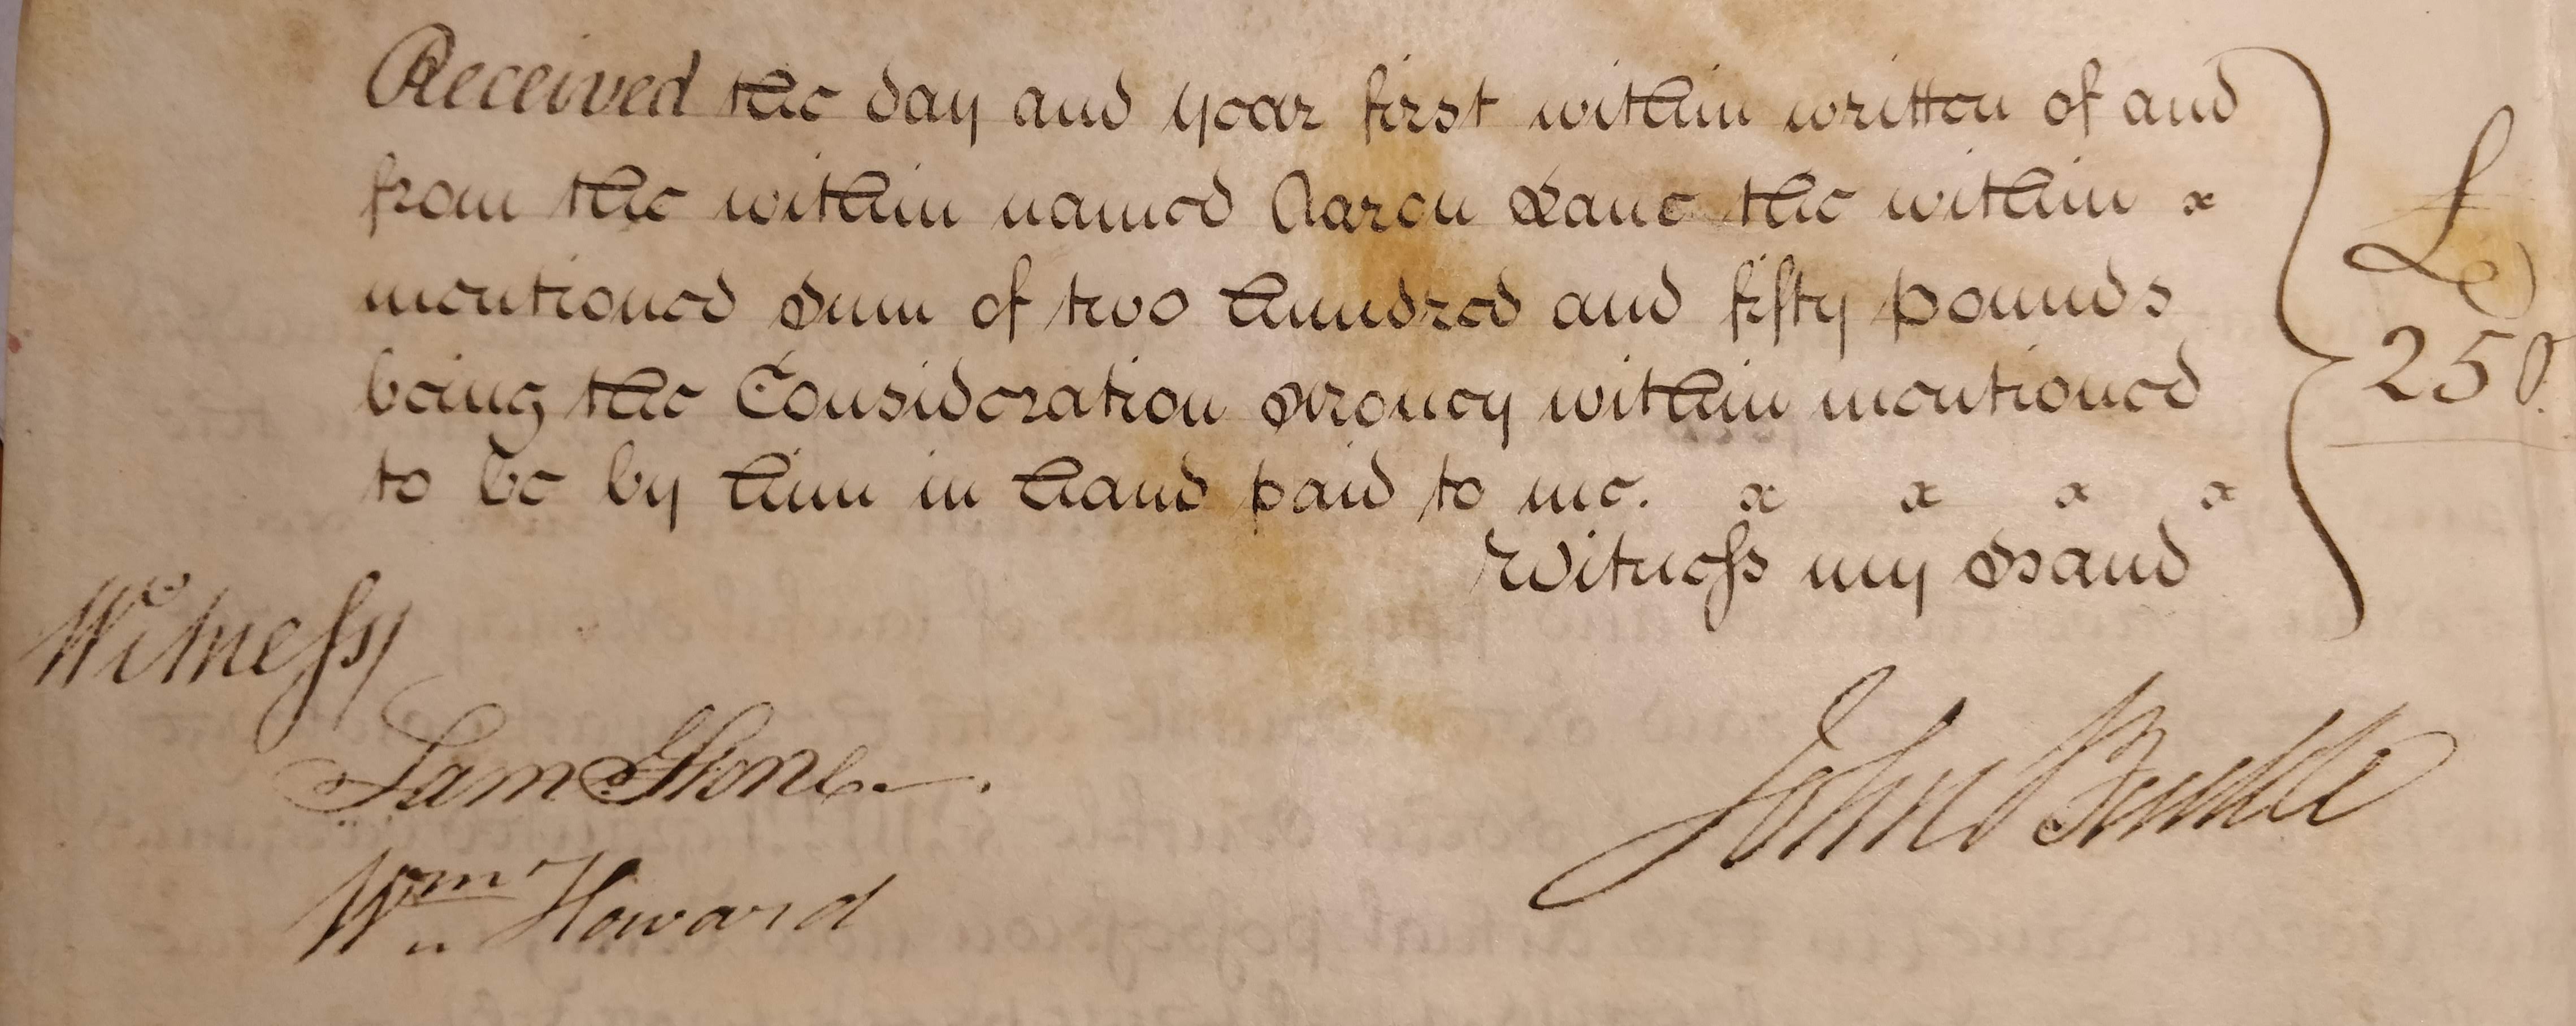 Received the day and year first within written of and
from the within named Aaron Lane the within x
mentioned Sum of two hundred and fifty pounds
being the Consideration Money within mentioned
to be by him in hand paid to me. x x x x
Witness my Hand
£
250.
Witness
Sam
Wm Howard
John